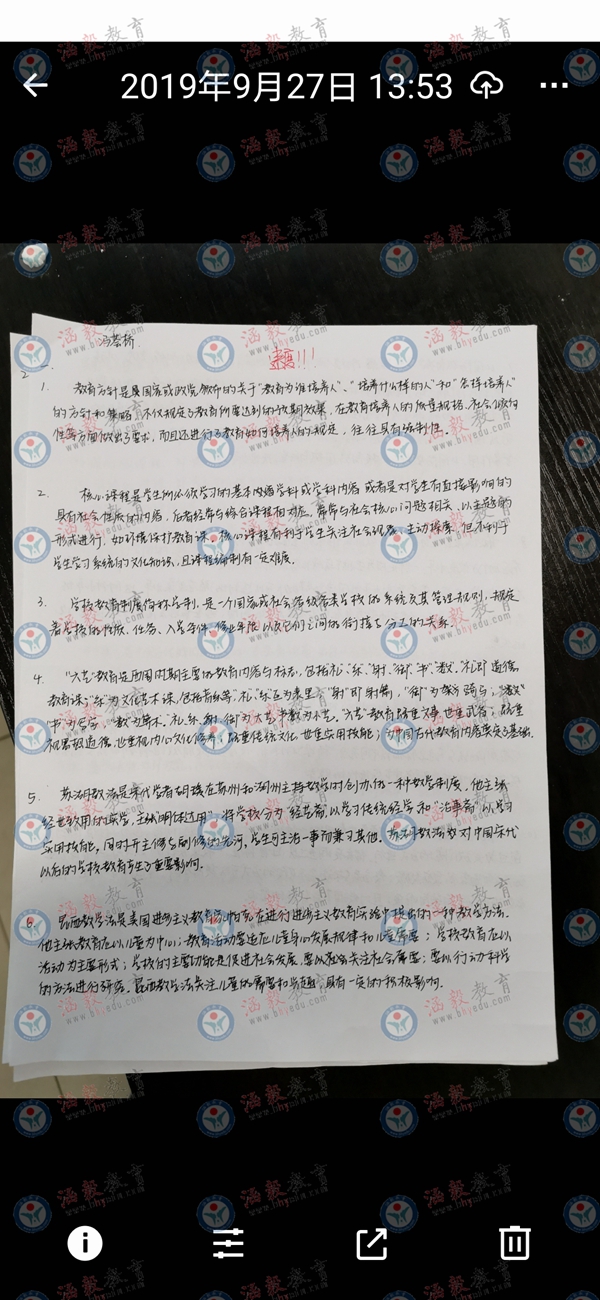 2019年9月27日 13:53
冯荟桥
2
1. 教育方针是是国家或政党颁布的关于"教育为谁培养人"、"培养什么样的人"和"怎样培养人"
的方针和策略，不仅规定了教育所要达到的预期效果，在教育培养人的质量规格、社会倾向
性等方面做出了要求，而且还进行了教育如何培养人的规定，往往具有统制性。
2. 核心课程是学生所必须学习的基本的学科或学科内容 或者是对学生有直接影响的
具有社会性质的内容，后者经常与综合课程相对应，常常与社会核心问题相关，以主题的
形式进行，如环境保护教育课。核心课程有利于学生关注社会现象、主动探索，但不利于
学生学习系统的文化知识，且课程编制有一定难度。
3. 学校教育制度简称学制，是一个国家或社会各级各类学校的系统及其管理规则，规定
着学校的性质、任务、入学条件、修业年限以及它们之间的衔接与分工的关系。
4. "六艺"教育是西周时期主要的教育内容与标志，包括礼、乐、射、御、书、数。礼即道德
教育课；"乐"为文化艺术课，包括音乐等；礼、乐互为表里；"射"即射箭，"御"为骑马；
"书"为写字，"数"为算术。礼、乐、射、御为大艺，书数为小艺。"六艺"教育既重文事也重武备；既重
礼貌规范道德，也重视内心文化修养；既重传统文化，也重实用技能；为中国古代教育内容奠定了基础。
5. 苏湖教法是宋代学者胡瑗在苏州和湖州主持教学时创办的一种教学制度。他主张
经世致用的实学，主张"明体达用"，将学校分为"经义斋"以学习传统经学和"治事斋"以学习
实用技能，同时开主修与副修的先河，学生可主治一事而兼习其他。苏湖教法对中国宋代
以后的学校教育产生了重要影响。
6. 昆西教学法是美国进步主义教育家帕克在进行进步主义教育实验中提出的一种教学方法。
他主张教育应以儿童为中心；教育活动要适应儿童身心发展规律和儿童需要；学校教育应以
活动为主要形式；学校的主要功能是促进社会发展，要以社会关注社会需要；要以行动科学
的方法进行研究。昆西教学法关注儿童的需要和兴趣，具有一定的积极影响。
涵毅教育
www.bhyedu.com